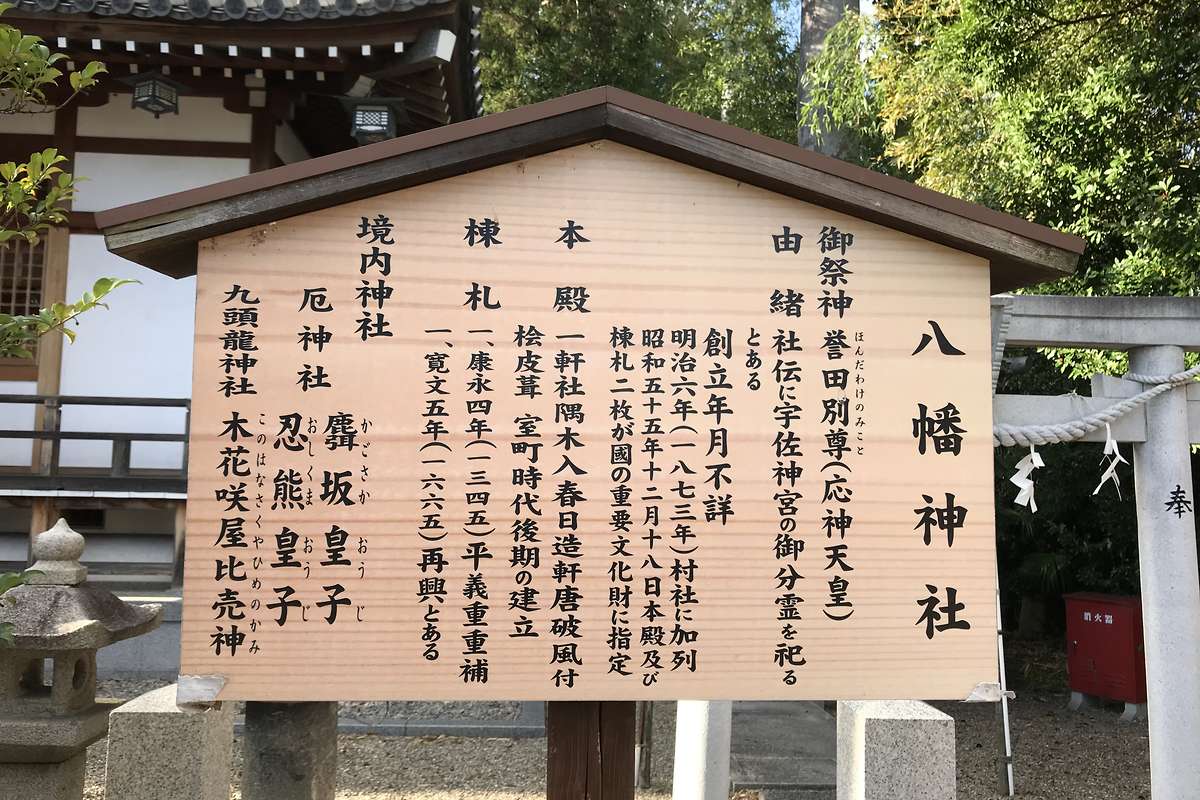 八幡神社
御祭神 誉田別尊(応神天皇)
ほんだわけのみこと
由緒 社伝に宇佐神宮の御分霊を祀る
とある
創立年月不詳
明治六年(一八七三年)村社に加列
昭和五十五年十二月十八日本殿及び
棟札二枚が國の重要文化財に指定
本殿 一軒社隅木入春日造軒唐破風付
桧皮葺 室町時代後期の建立
棟札 一、康永四年(一三四五)平義重重補
一、寛文五年(一六六五)再興とある
境内神社
厄神社 麛坂皇子
かごさか おうじ
忍熊皇子
おしくま おうじ
九頭龍神社 木花咲屋比売神
このはなさくやひめのかみ
奉
消火器